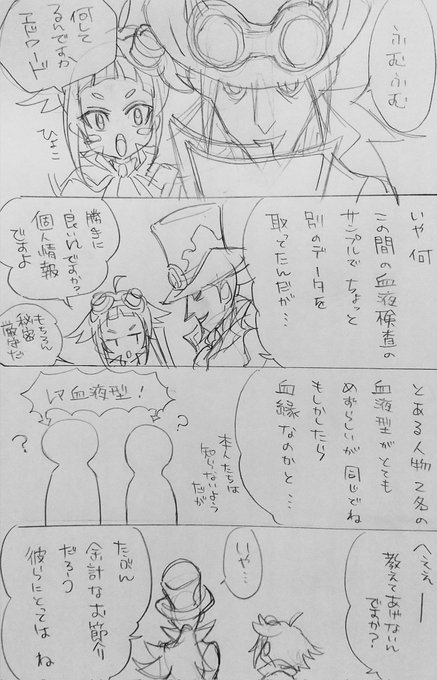 ふむふむ
何して
るんですか
エドワード
ひょこ
いや何
この間の血液検査の
サンプルでちょっと
別のデータを
取ってたんだが…
勝手に
良いんですか?
個人情報
ですよ
もちろん
秘密
厳守だ
とある人物2名の
血液型がとても
めずらしいが同じでね
もしかしたら
血縁なのかと…
レア血液型!
?
?
本人たちは
知らないよう
だが
へええー
教えてあげないん
ですか?
いや…
たぶん
余計なお節介
だろう
彼らにとってはね